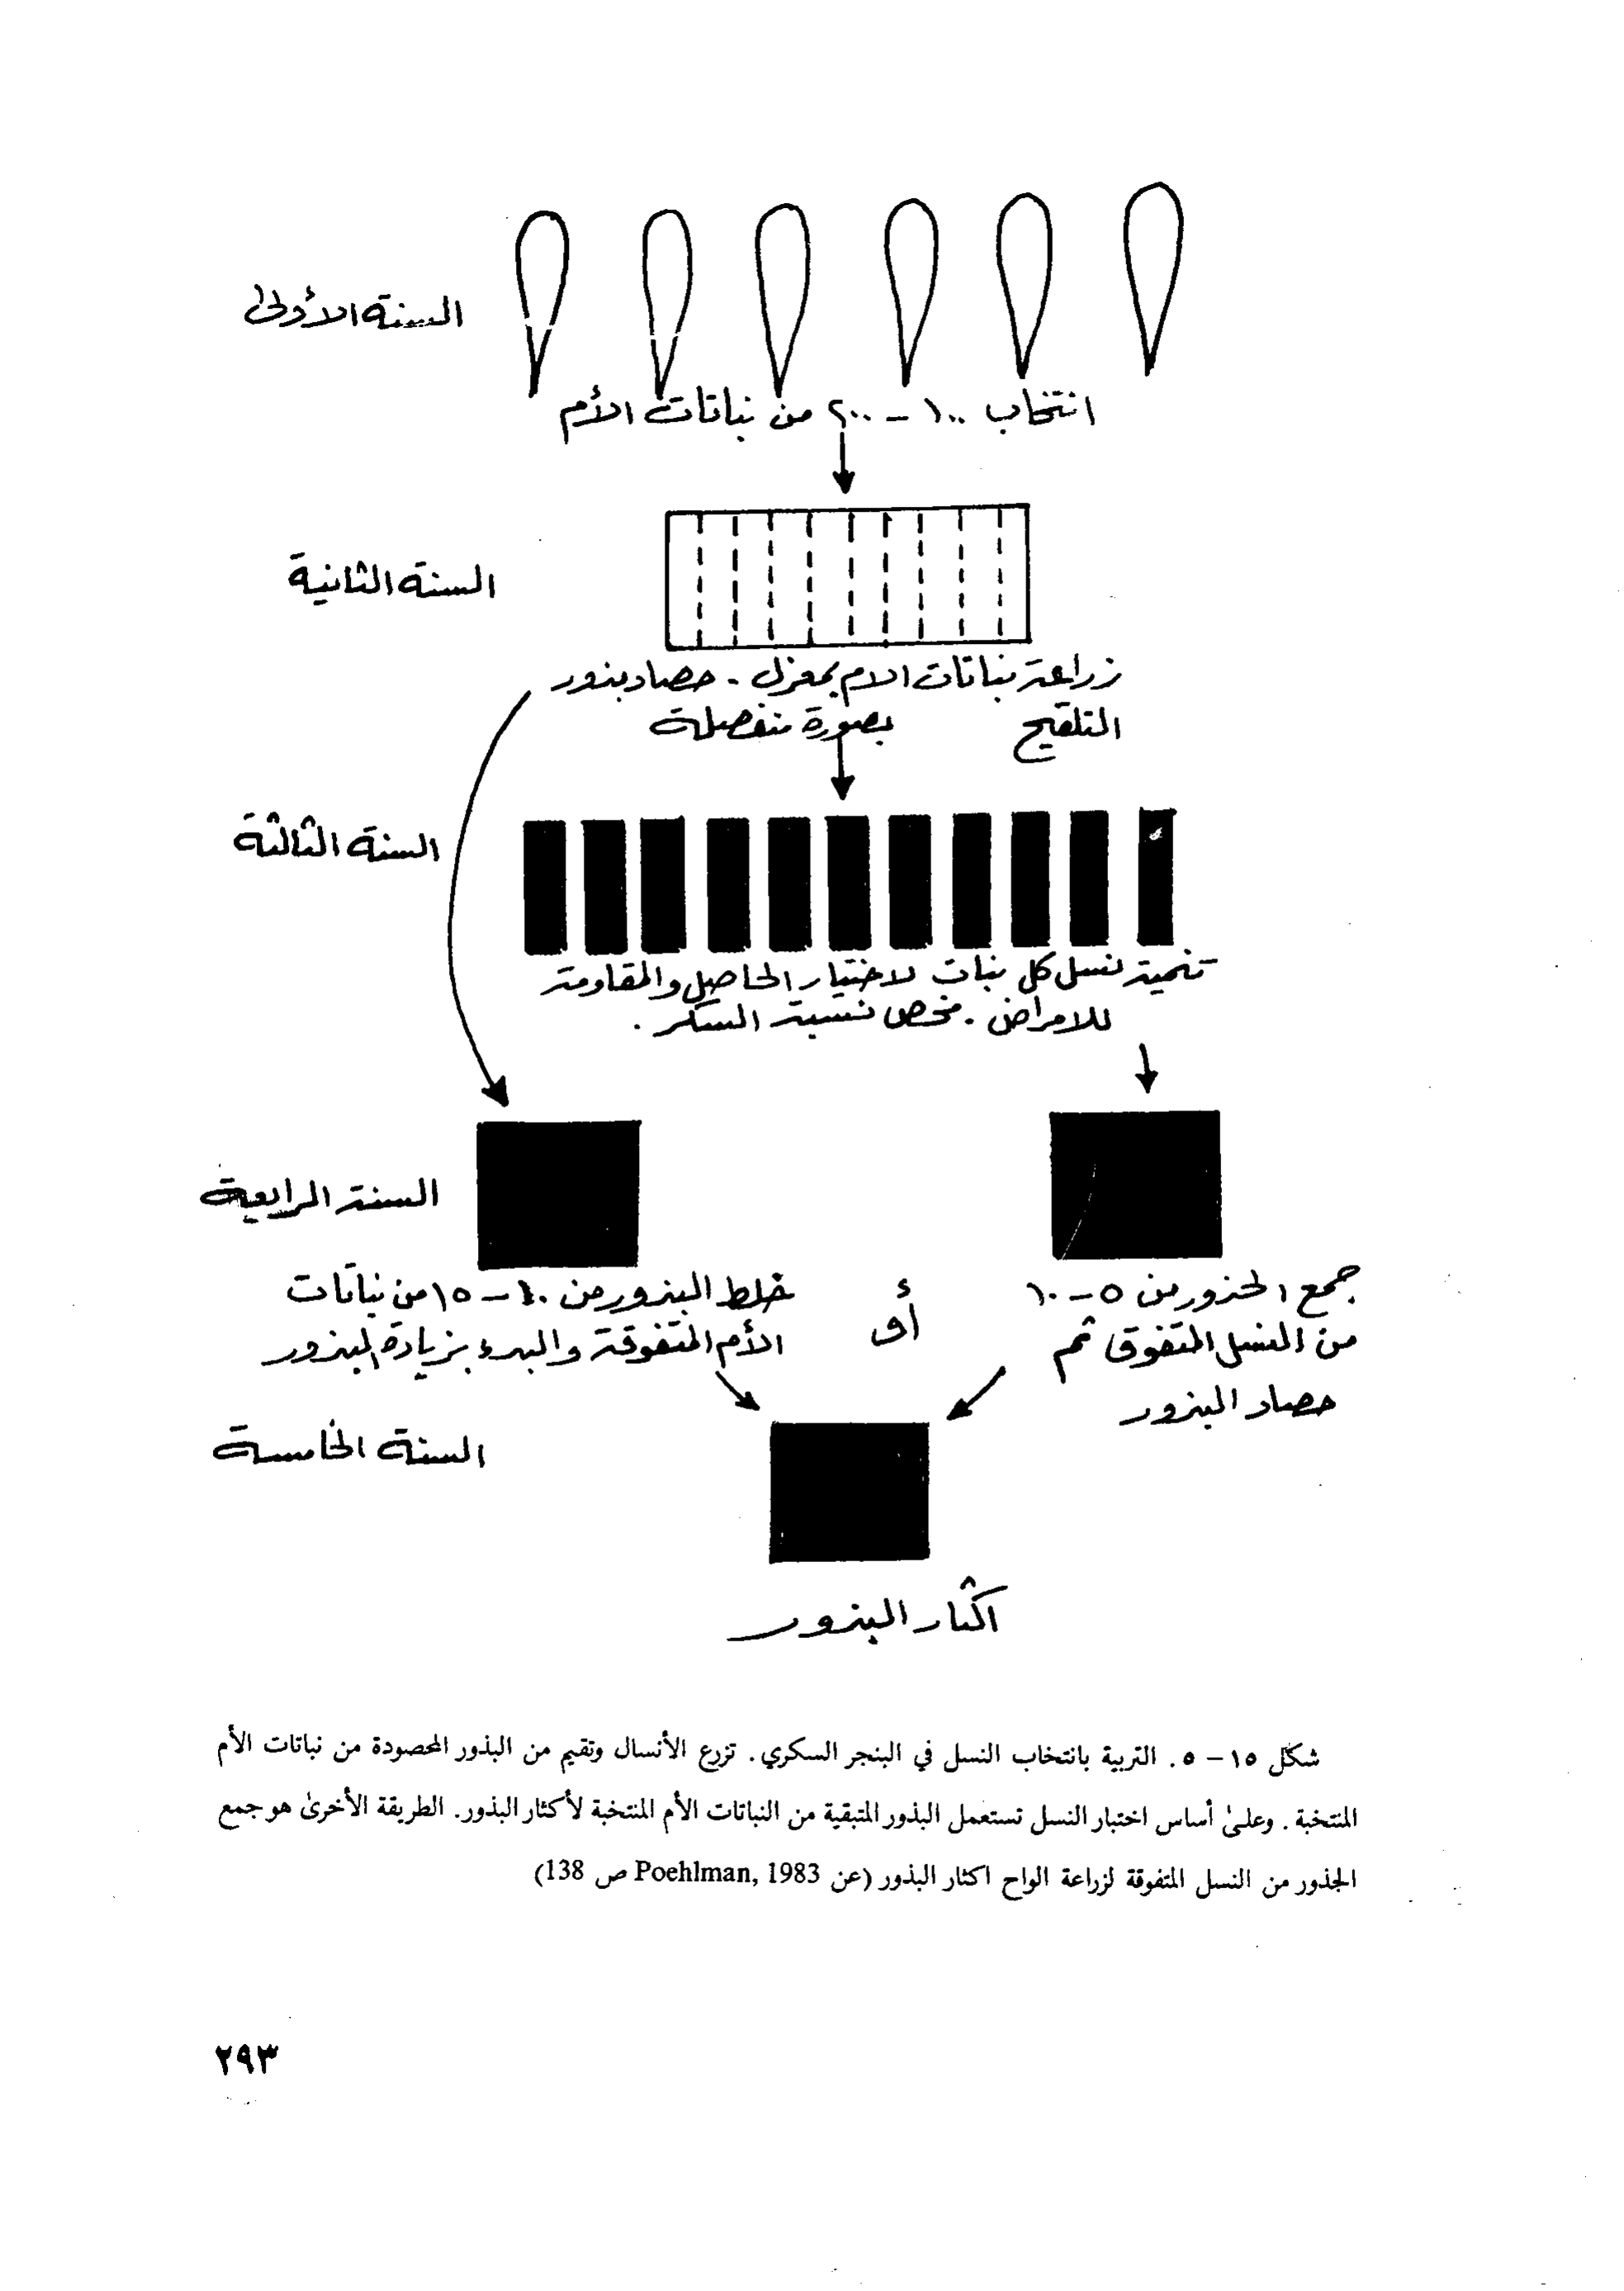 السنة الأولى
انتخاب ١٠٠ - ٢٠٠ من نباتات الأم
السنة الثانية
زراعة نباتات الام بمعزل - حصاد بذور
التلقيح بصورة منفصلة
السنة الثالثة
تنمية نسل كل نبات لاختبار الحاصل والمقاومة
للامراض . فحص نسبة السكر .
السنة الرابعة
جمع الجذور من ٥ - ١٠
من النسل المتفوق ثم
حصاد البذور
أو
خلط البذور من ١٠ - ١٥ من نباتات
الأم المتفوقة والبدء بزيادة البذور
السنة الخامسة
اكثار البذور
شكل ١٥ - ٥ . التربية بانتخاب النسل في البنجر السكري . تزرع الأنسال وتقيم من البذور المحصودة من نباتات الأم
المنتخبة . وعلى أساس اختبار النسل تستعمل البذور المتبقية من النباتات الأم المنتخبة لأكثار البذور . الطريقة الأخرى هو جمع
الجذور من النسل المتفوقة لزراعة الواح اكثار البذور (عن Poehlman, 1983 ص 138)
٢٩٣